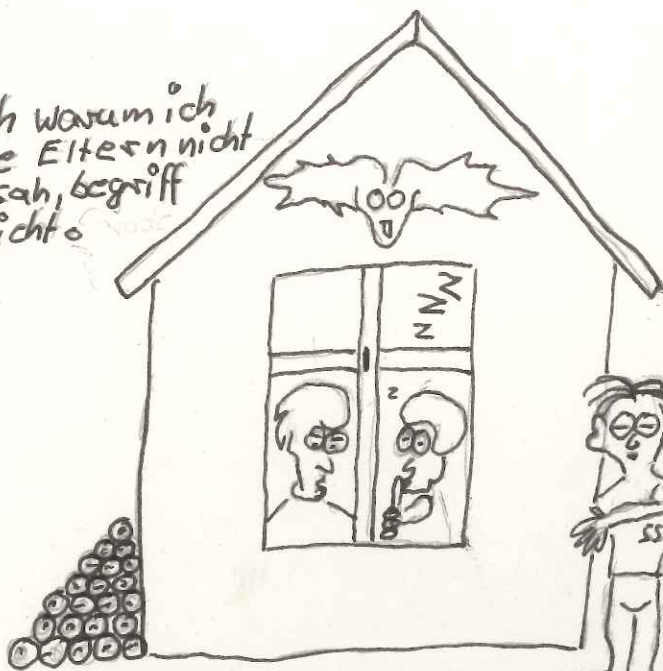 h warum ich
e Eltern nicht
sah, begriff
icht.
z
z
z
z
ss